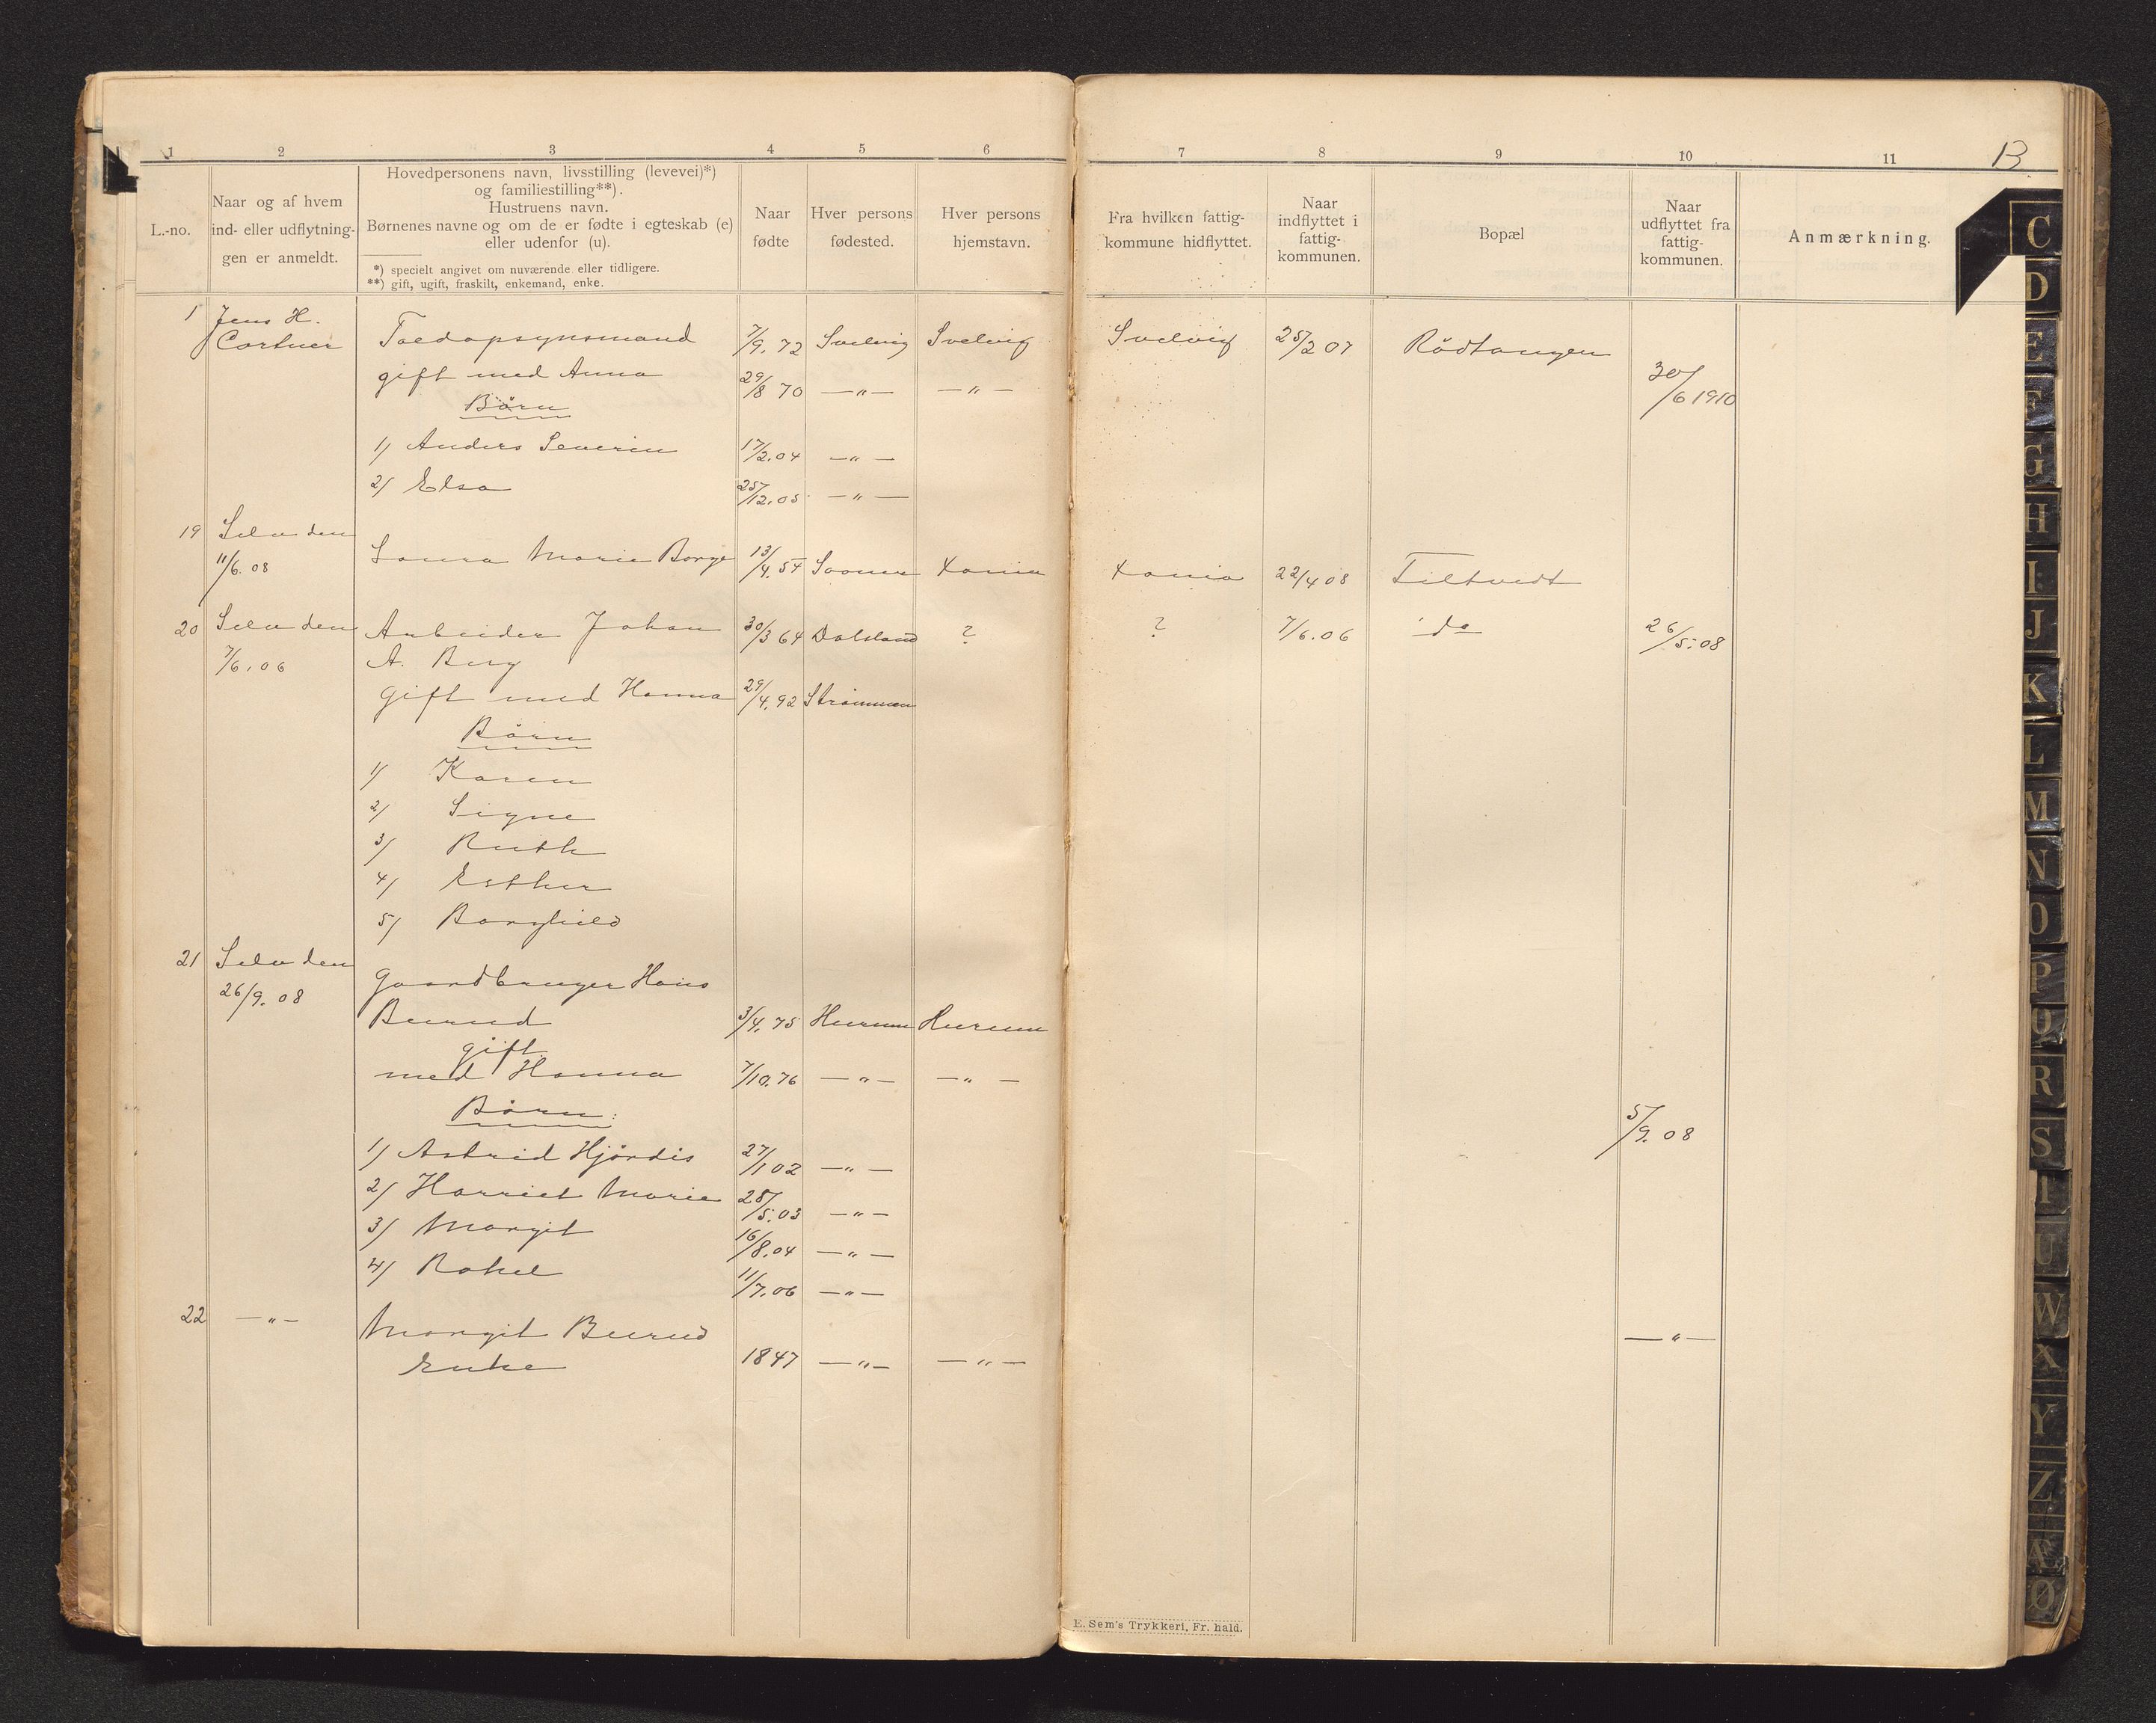 1 2 3 4 5 6 7 8 9 10 11 B
L.-no.
Naar og af hvem
ind- eller udflytnin-
gen er anmeldt.
Hovedpersonens navn, livsstilling (levevei)*)
og familiestilling**).
Hustruens navn.
Børnenes navne og om de er fødte i egteskab (e)
eller udenfor (u).
*) specielt angivet om nuværende eller tidligere.
**) gift, ugift, fraskilt, enkemand, enke.
Naar
fødte
Hver persons
fødested.
Hver persons
hjemstavn.
Fra hvilken fattig-
kommune hidflyttet.
Naar
indflyttet i
fattig-
kommunen.
Bopæl
Naar
udflyttet fra
fattig-
kommunen.
Anmærkning.
1 Jens H.
Cortner Toldopsynsmand 7/9. 72 Svelvig Svelvig Svelvig 25/2 07 Rödtangen
gift med Anna 29/8 70 —"— —"— 30/6 1910
Börn
1/ Anders Severin 17/2. 04 —"—
2/ Elsa 25/12. 05 —"—
19 Selv den
11/6. 08 Laura Marie Borge 13/4. 54 Sooner Xania Xania 22/4 08 Tiltvedt
20 Selv den Arbeider Johan 30/3 64 Dalsland ? ? 7/6. 06 do 26/5. 08
7/6. 06 A. Berg
gift med Hanna 29/4. 92 Strömmen
Börn
1/ Karen
2/ Signe
3/ Ruth
4/ Esther
5/ Borghild
21 Selv den
26/9. 08 Gaardbruger Hans
Burud 3/4. 75 Hurum Hurum
gift
med Hanna 7/10. 76 —"— —"—
Börn: 5/9. 08
1/ Astrid Hjördis 27/1 02 —"—
2/ Harriet Marie 28/5. 03 —"—
3/ Margit 16/8. 04 —"—
4/ Rakel 11/7. 06 —"—
22 —"— Margit Burud —"—
Enke 1847 —"— —"—
E. Sem's Trykkeri, Fr. hald.
C
D
E
F
G
H
I
J
K
L
M
N
O
P
Q
R
S
T
U
W
X
Y
Z
Æ
Ø